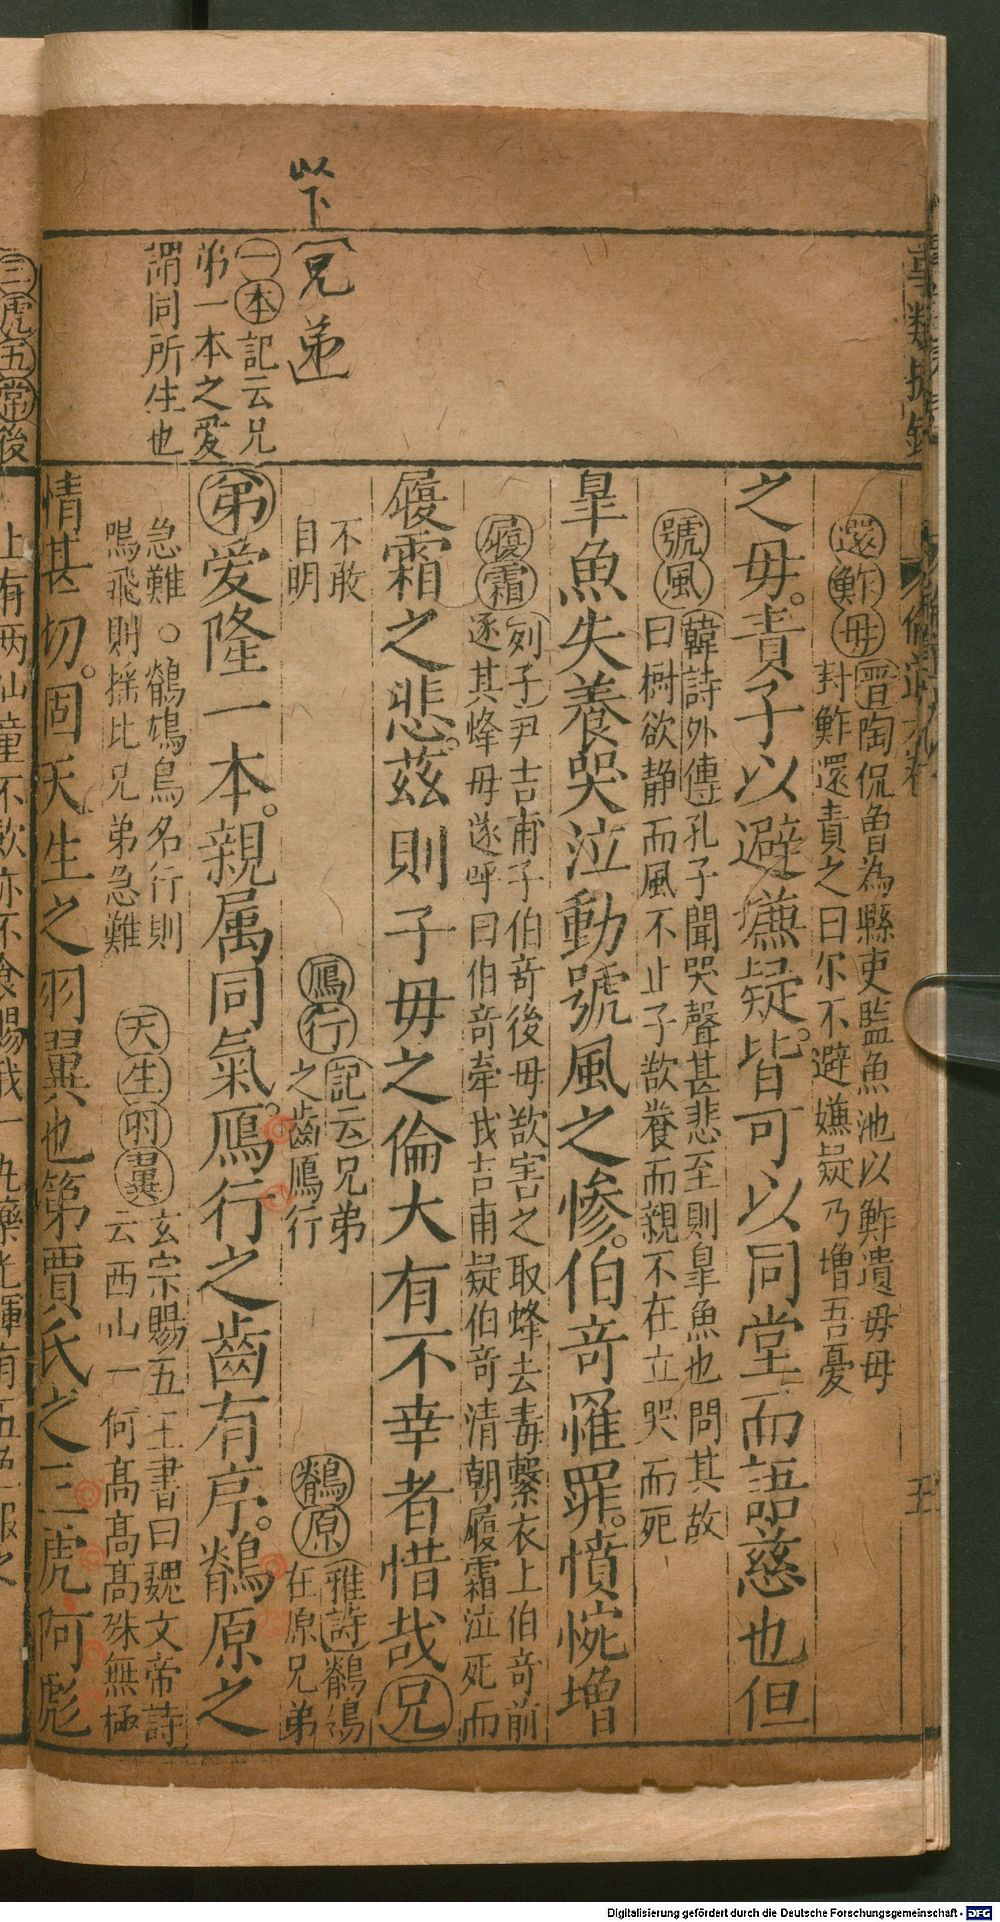 以下
兄弟
一本記云兄
弟一本之愛
謂同所生也
還鮓毋晋陶侃曾為縣吏監魚池以鮓遺毋毋
封鮓還責之曰尔不避嫌疑乃增吾憂
之毋責子以避嫌疑皆可以同堂而語慈也但
號風韓詩外傳孔子聞哭聲甚悲至則臯魚也問其故
曰樹欲静而風不止子欲養而親不在立哭而死
臯魚失養哭泣動號風之慘伯竒罹罪憤惋增
履霜列子尹吉甫子伯竒後毋欲害之取蜂去毒繫衣上伯竒前
逐其蜂毋遂呼曰伯竒牽我吉甫疑伯竒清朝履霜泣死而
履霜之悲兹則子毋之倫大有不幸者惜哉兄
不敢
自明
鴈行記云兄弟
之齒鴈行
鶺原雅詩鶺鴒
在原兄弟
弟愛隆一本親属同氣鴈行之齒有序鶺原之
急難○鶺鴒鳥名行則
鳴飛則揺比兄弟急難
天生羽翼玄宗賜五王書曰魏文帝詩
云西山一何髙髙髙殊無極
情甚切固天生之羽翼也第賈氏之三虎阿彪
三虎五常後
上有两仙童不飲亦不食賜我一丸藥光輝有五
Digitalisierung gefördert durch die Deutsche Forschungsgemeinschaft - DFG